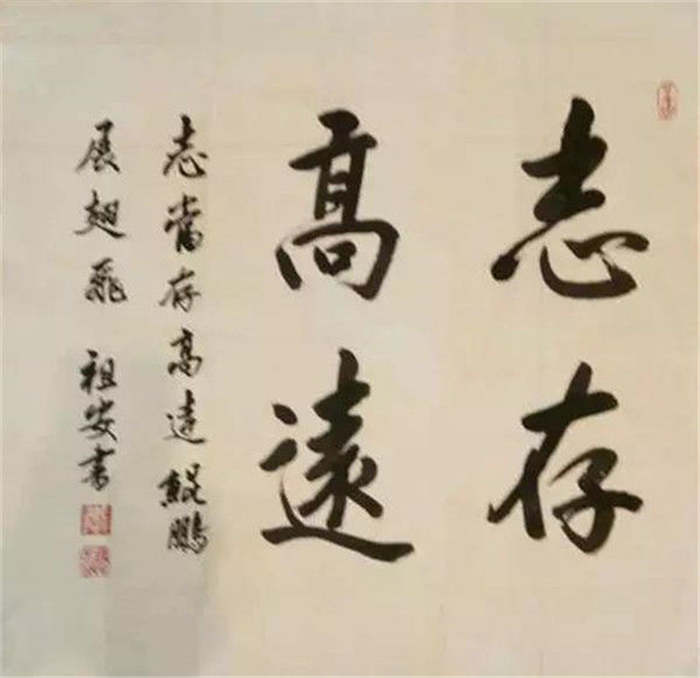 志存
高遠
志當存高遠鯤鵬
展翅飛 祖安書